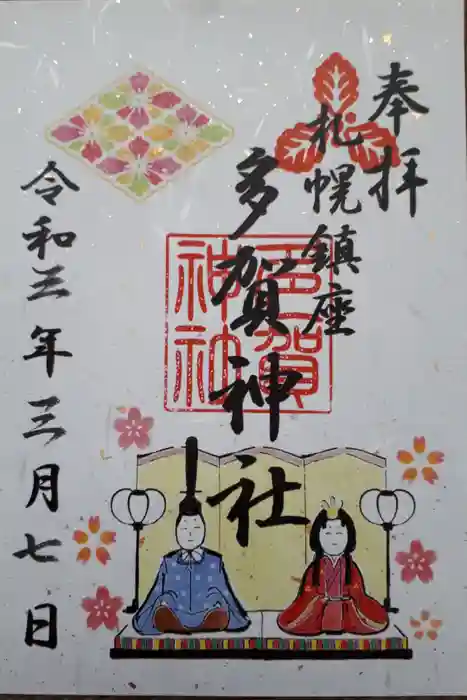 奉拝
札幌鎮座
多賀神社
多賀神社
令和三年三月七日